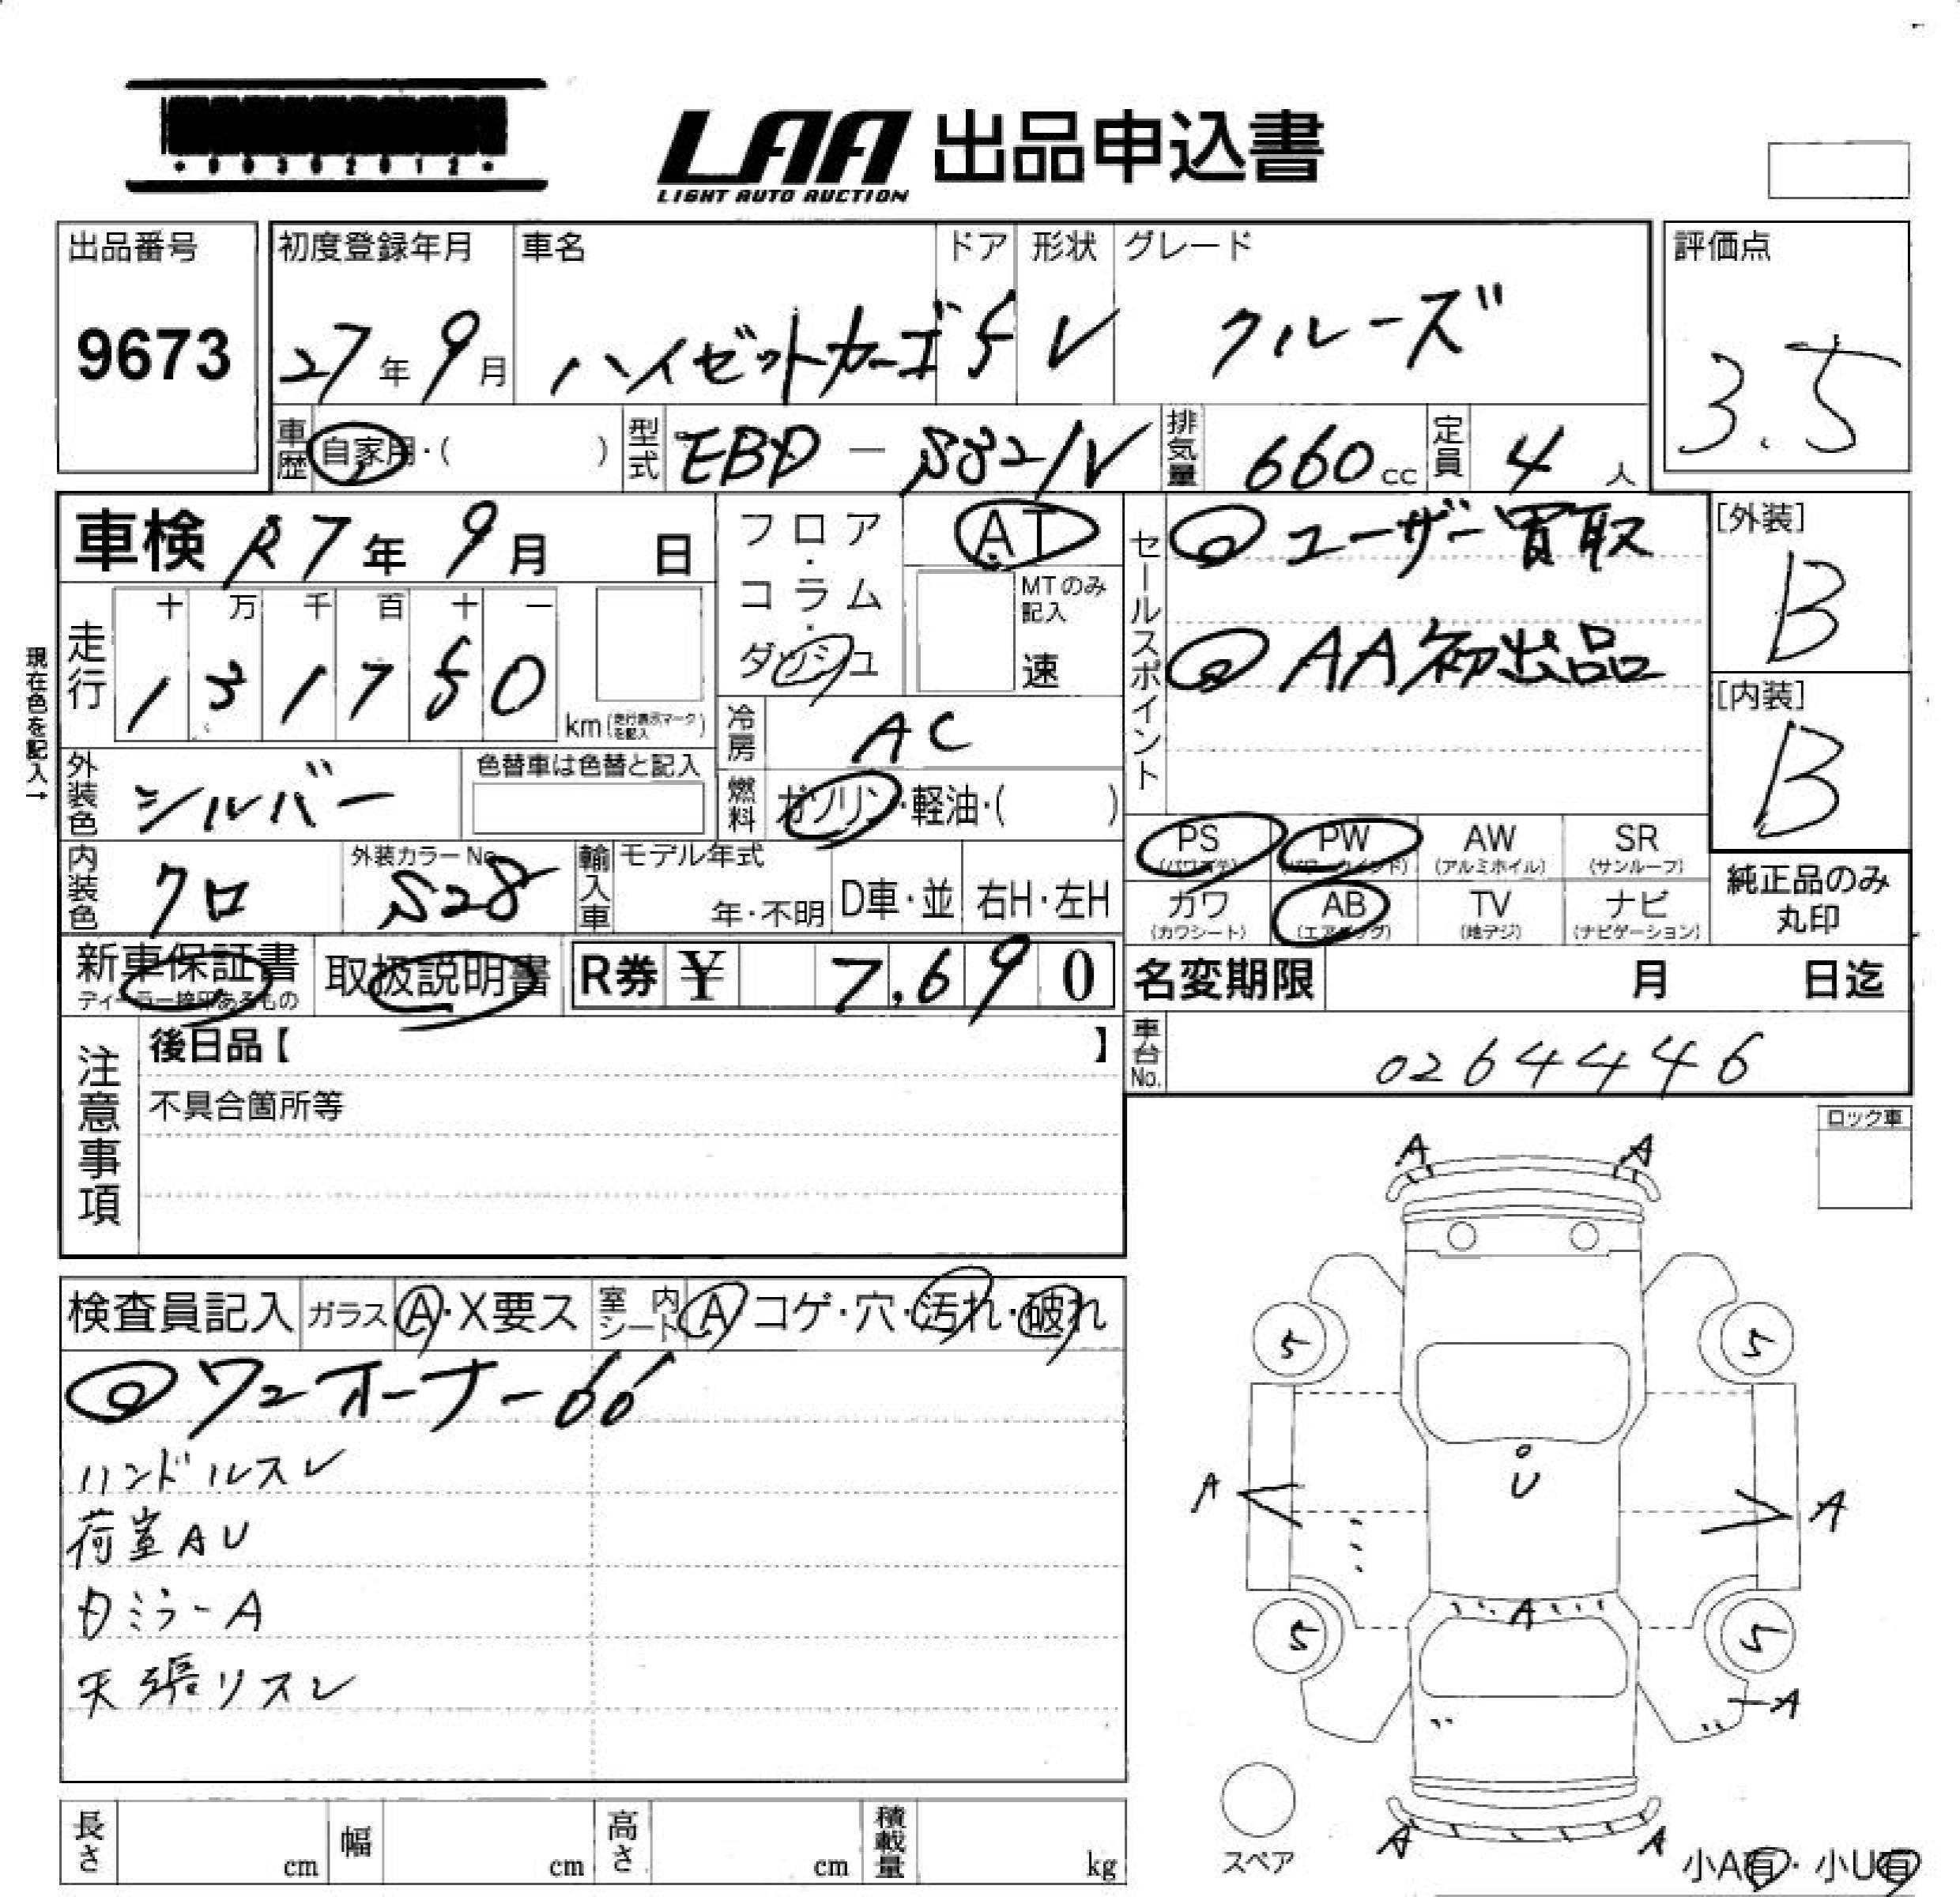 ・00302012・
LAA 出品申込書
LIGHT AUTO AUCTION
出品番号 初度登録年月 車名 ドア 形状 グレード 評価点
9673 27年9月 ハイゼットカーゴ 5 V クルーズ 3.5
車歴 自家用・( ) 型式 EBD-S321V 排気量 660cc 定員 4人
車検 R7年9月 日 フロア・コラム・ダッシュ AT
MTのみ記入
速
セールスポイント
◎ユーザー買取
◎AA初出品
[外装]
B
[内装]
B
現在色を記入→
走行 十 万 千 百 十 一
1 3 1 7 5 0 km(走行表示マークを記入)
冷房 AC
外装色 シルバー 色替車は色替と記入
燃料 ガソリン・軽油・( )
PS (パワステ) PW (パワーウインド) AW (アルミホイル) SR (サンルーフ)
カワ (カワシート) AB (エアバッグ) TV (地デジ) ナビ (ナビゲーション)
純正品のみ
丸印
内装色 クロ 外装カラーNo. S28 輸入車 モデル年式 年・不明 D車・並 右H・左H
新車保証書 ディーラー捺印あるもの 取扱説明書 R券 ¥ 7,690
名変期限 月 日迄
車台No. 0264446
注意事項
後日品【 】
不具合箇所等
ロック車
検査員記入 ガラス A・X要ス 室内シート A コゲ・穴・汚れ・破れ
◎ワンオーナー
ハンドルスレ
荷室AU
内ミラーA
天張リスレ
A A
5 5
U
A A
A
5 5
A
A A
スペア
小A有・小U有
長さ cm 幅 cm 高さ cm 積載量 kg